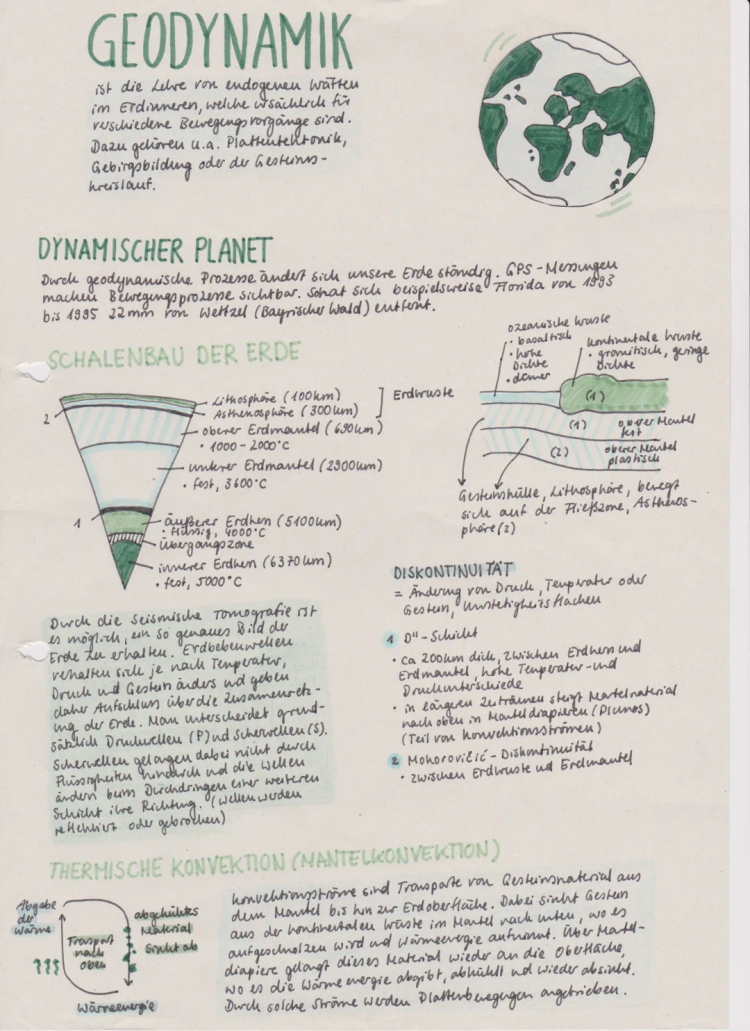 GEODYNAMIK
ist die Lehre von endogenen Kräften
im Erdinneren, welche ursächlich für
verschiedene Bewegungsvorgänge sind.
Dazu gehören u.a. Plattentektonik,
Gebirgsbildung oder der Gesteins-
kreislauf.
DYNAMISCHER PLANET
Durch geodynamische Prozesse ändert sich unsere Erde ständig. GPS-Messungen
machen Bewegungsprozesse sichtbar. So hat sich beispielsweise Florida von 1993
bis 1995 22mm von Wettzel (Bayrischer Wald) entfernt.
SCHALENBAU DER ERDE
2
Lithosphäre (100km)
Asthenosphäre (300km)
Erdkruste
oberer Erdmantel (690km)
• 1000-2000°C
unterer Erdmantel (2900km)
• fest, 3600°C
1
äußerer Erdkern (5100km)
• flüssig, 4000°C
Übergangszone
innerer Erdkern (6370km)
• fest, 5000°C
ozeanische Kruste
• basaltisch
• hohe
Dichte
• dünner
kontinentale Kruste
• granitisch, geringe
Dichte
(1)
(1)
oberer Mantel
fest
(2)
oberer Mantel
plastisch
Gesteinshülle, Lithosphäre, bewegt
sich auf der Fließzone, Asthenos-
phäre (2)
Durch die Seismische Tomografie ist
es möglich, ein so genaues Bild der
Erde zu erhalten. Erdbebenwellen
verhalten sich je nach Temperatur,
Druck und Gestein anders und geben
daher Aufschluss über die Zusammensetz-
ung der Erde. Man unterscheidet grund-
sätzlich Druckwellen (P) und Scherwellen (S).
Scherwellen gelangen dabei nicht durch
Flüssigkeiten hindurch und die Wellen
ändern beim Durchdringen einer weiteren
Schicht ihre Richtung. (Wellen werden
reflektiert oder gebrochen)
DISKONTINUITÄT
= Änderung von Druck, Temperatur oder
Gestein, Unstetigkeitsflächen
1 D"-Schicht
• ca 200km dick, zwischen Erdkern und
Erdmantel, hohe Temperatur- und
Druckunterschiede
• in längeren Zeiträumen steigt Mantelmaterial
nach oben in Manteldiapiren (Plumes)
(Teil von Konvektionsströmen)
2 Mohorovičić-Diskontinuität
• zwischen Erdkruste und Erdmantel
THERMISCHE KONVEKTION (MANTELKONVEKTION)
Abgabe
der
Wärme
Transport
nach
oben
abgekühltes
Material
sinkt ab
Wärmeenergie
Konvektionsströme sind Transporte von Gesteinsmaterial aus
dem Mantel bis hin zur Erdoberfläche. Dabei sinkt Gestein
aus der kontinentalen Kruste im Mantel nach unten, wo es
aufgeschmolzen wird und Wärmeenergie aufnimmt. Über Mantel-
diapiere gelangt dieses Material wieder an die Oberfläche,
wo es die Wärmeenergie abgibt, abkühlt und wieder absinkt.
Durch solche Ströme werden Plattenbewegungen angetrieben.